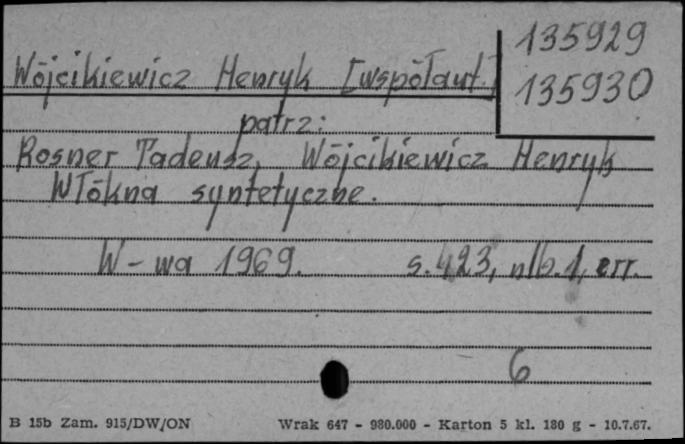 135929
Wójcikiewicz Henryk [współaut.]
135930
patrz:
Rosner Tadeusz, Wójcikiewicz Henryk
Włókna syntetyczne.
W-wa 1969. s. 423, nlb. 1, err.
6
B 15b Zam. 915/DW/ON Wrak 647 - 980.000 - Karton 5 kl. 180 g - 10.7.67.